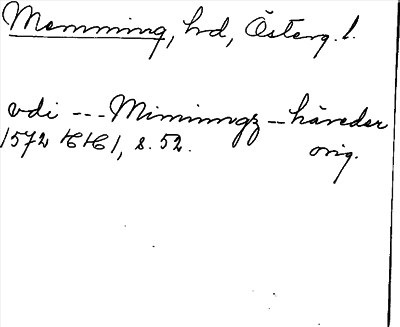 Memming, hd, Österg. l.
vdi --- Mimimgz – häreder
1572 HH 1, s. 52. orig.